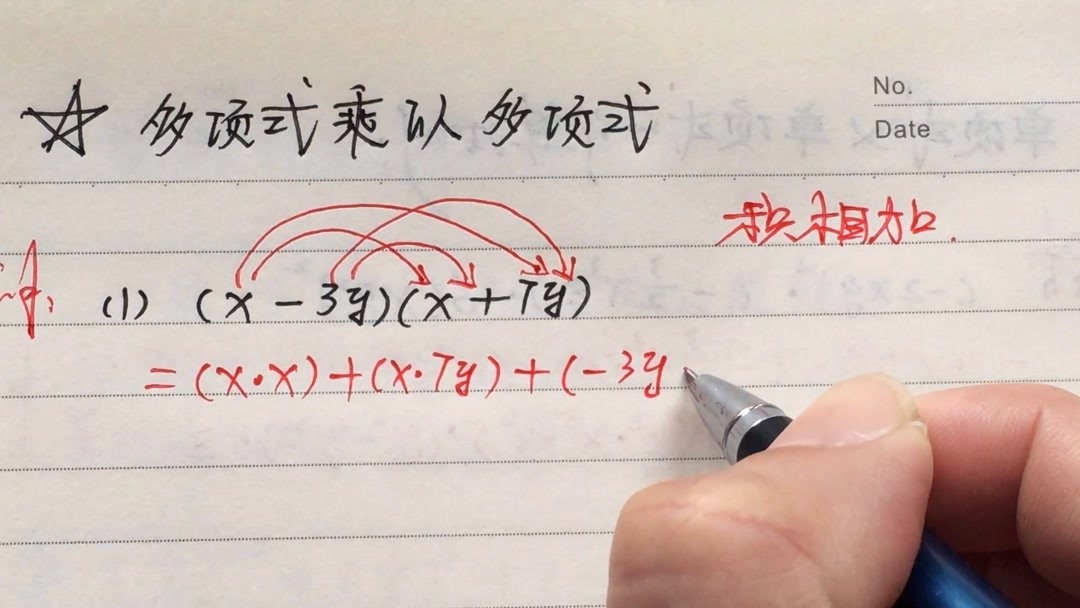 No.
Date
☆ 多项式乘以多项式
积相加.
(1) (x-3y)(x+7y)
=(x·x)+(x·7y)+(-3y